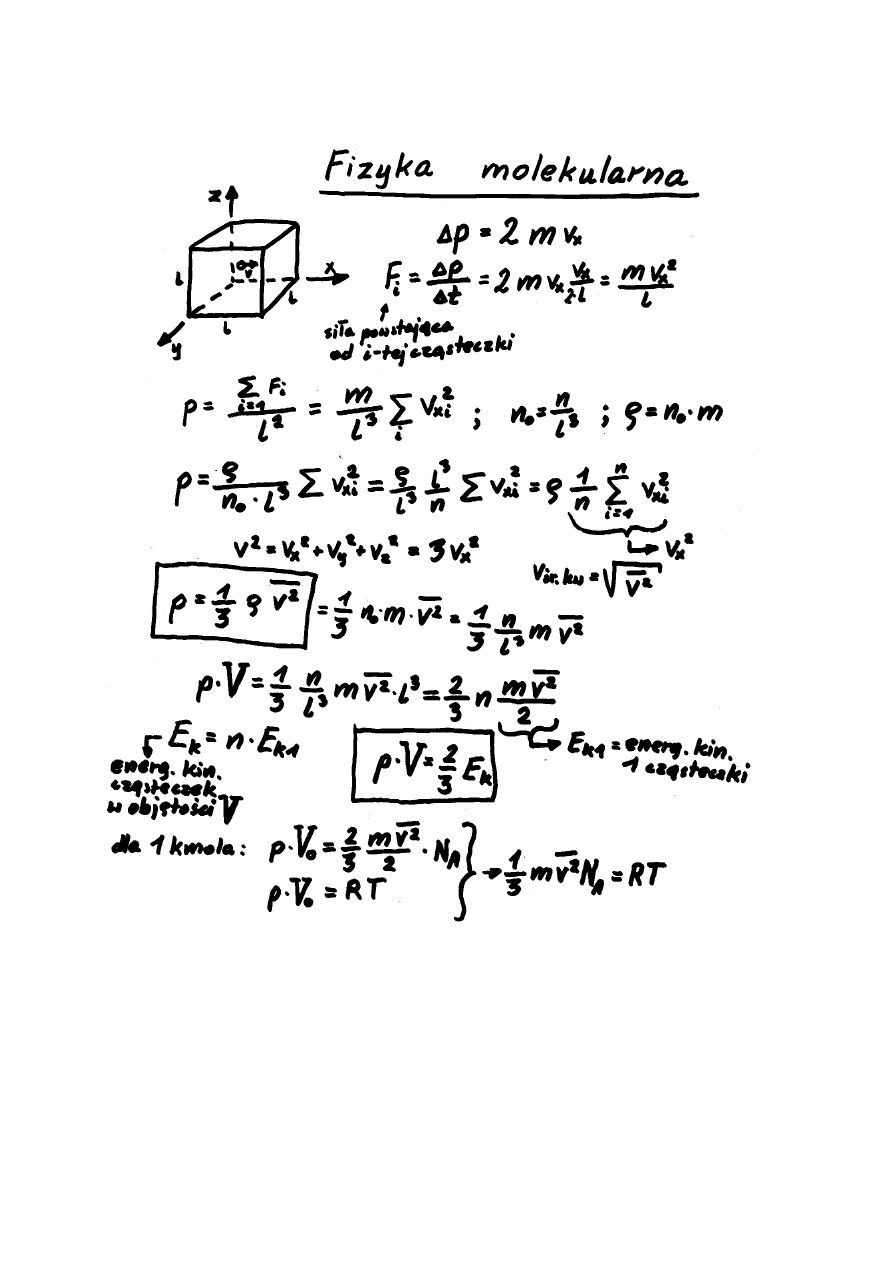 Fizyka molekularna
z
x
y
v
l
l
l
Δp = 2 m vₓ
Fᵢ = Δp/Δt = 2 m vₓ vₓ/2l = m vₓ²/l
siła powstająca
od i-tej cząsteczki
p = ∑ᵢ₌₁ Fᵢ / l² = m/l³ ∑ᵢ vₓᵢ² ; n₀ = n/l³ ; ρ = n₀·m
p = ρ/(n₀·l³) ∑ vₓᵢ² = ρ/l³ l³/n ∑ vₓᵢ² = ρ 1/n ∑ᵢ₌₁ⁿ vₓᵢ²
→ vₓ²
v² = vₓ² + v_y² + v_z² = 3vₓ²
v_śr.kw = √(v̅²)
p = 1/3 ρ v̅² = 1/3 n₀·m·v̅² = 1/3 n/l³ m v̅²
p·V = 1/3 n/l³ m v̅²·l³ = 2/3 n m v̅²/2
E_k = n·E_k1
energ. kin.
cząsteczek
w objętości V
p·V = 2/3 E_k
E_k1 = energ. kin.
1 cząsteczki
dla 1 kmola: p·V₀ = 2/3 m v̅²/2 · N_A
p·V₀ = RT
→ 1/3 m v̅² N_A = RT